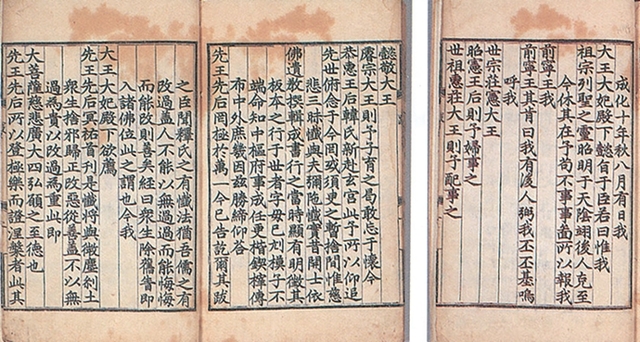 成化十年秋八月有日我
大王大妃殿下懿旨于臣若曰惟我
祖宗列聖之靈昭明于天陰翊後人克至
今休其在予苟不事事啚所以報我
前寧王我
前寧王其肯曰我有後人弼我丕丕基嗚
呼我
世宗莊憲大王
昭憲王后則予婦事之
世祖惠莊大王則予配事之
懿敬大王
睿宗大王則予子育之曷敢忘于懷今
恭惠王后韓氏新赴玄宮此予所以仰追
先世俯念于今罔或須更之暫捨間惟慈
悲三昧懺與夫彌陁懺實昔開士依
佛遺敎撰輯成書行之當時顯有明徵其
板本之行于世者字毋已刓模子不
端命知中樞府事成任更楷鍥榟傳
布中外庶幾因玆勝締仰荅
先王先后罔極於萬一今已告訖爾其跋
之臣聞釋氏之有懺法猶吾儒之有
改過盖人不能以無過過而能悔悔
而能改則善矣經曰衆生除舊眚即
入諸佛位此之謂也今我
大王大妃殿下欲薦
先王先后冥祐首刊是懺將與微塵刹土
衆生捨邪歸正改惡從善盖不以無
過爲貴以改過爲重此即
大菩薩慈悲廣大四弘願之至德也
先王先后所以登極樂而證涅槃者此其